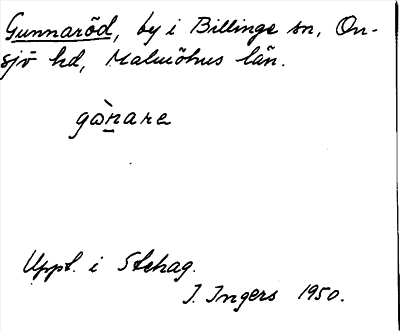 Gunnaröd, by i Billinge sn, On-
sjö hd, Malmöhus län.
gɷ̀n̲are
Uppt. i Stehag.
I. Ingers 1950.